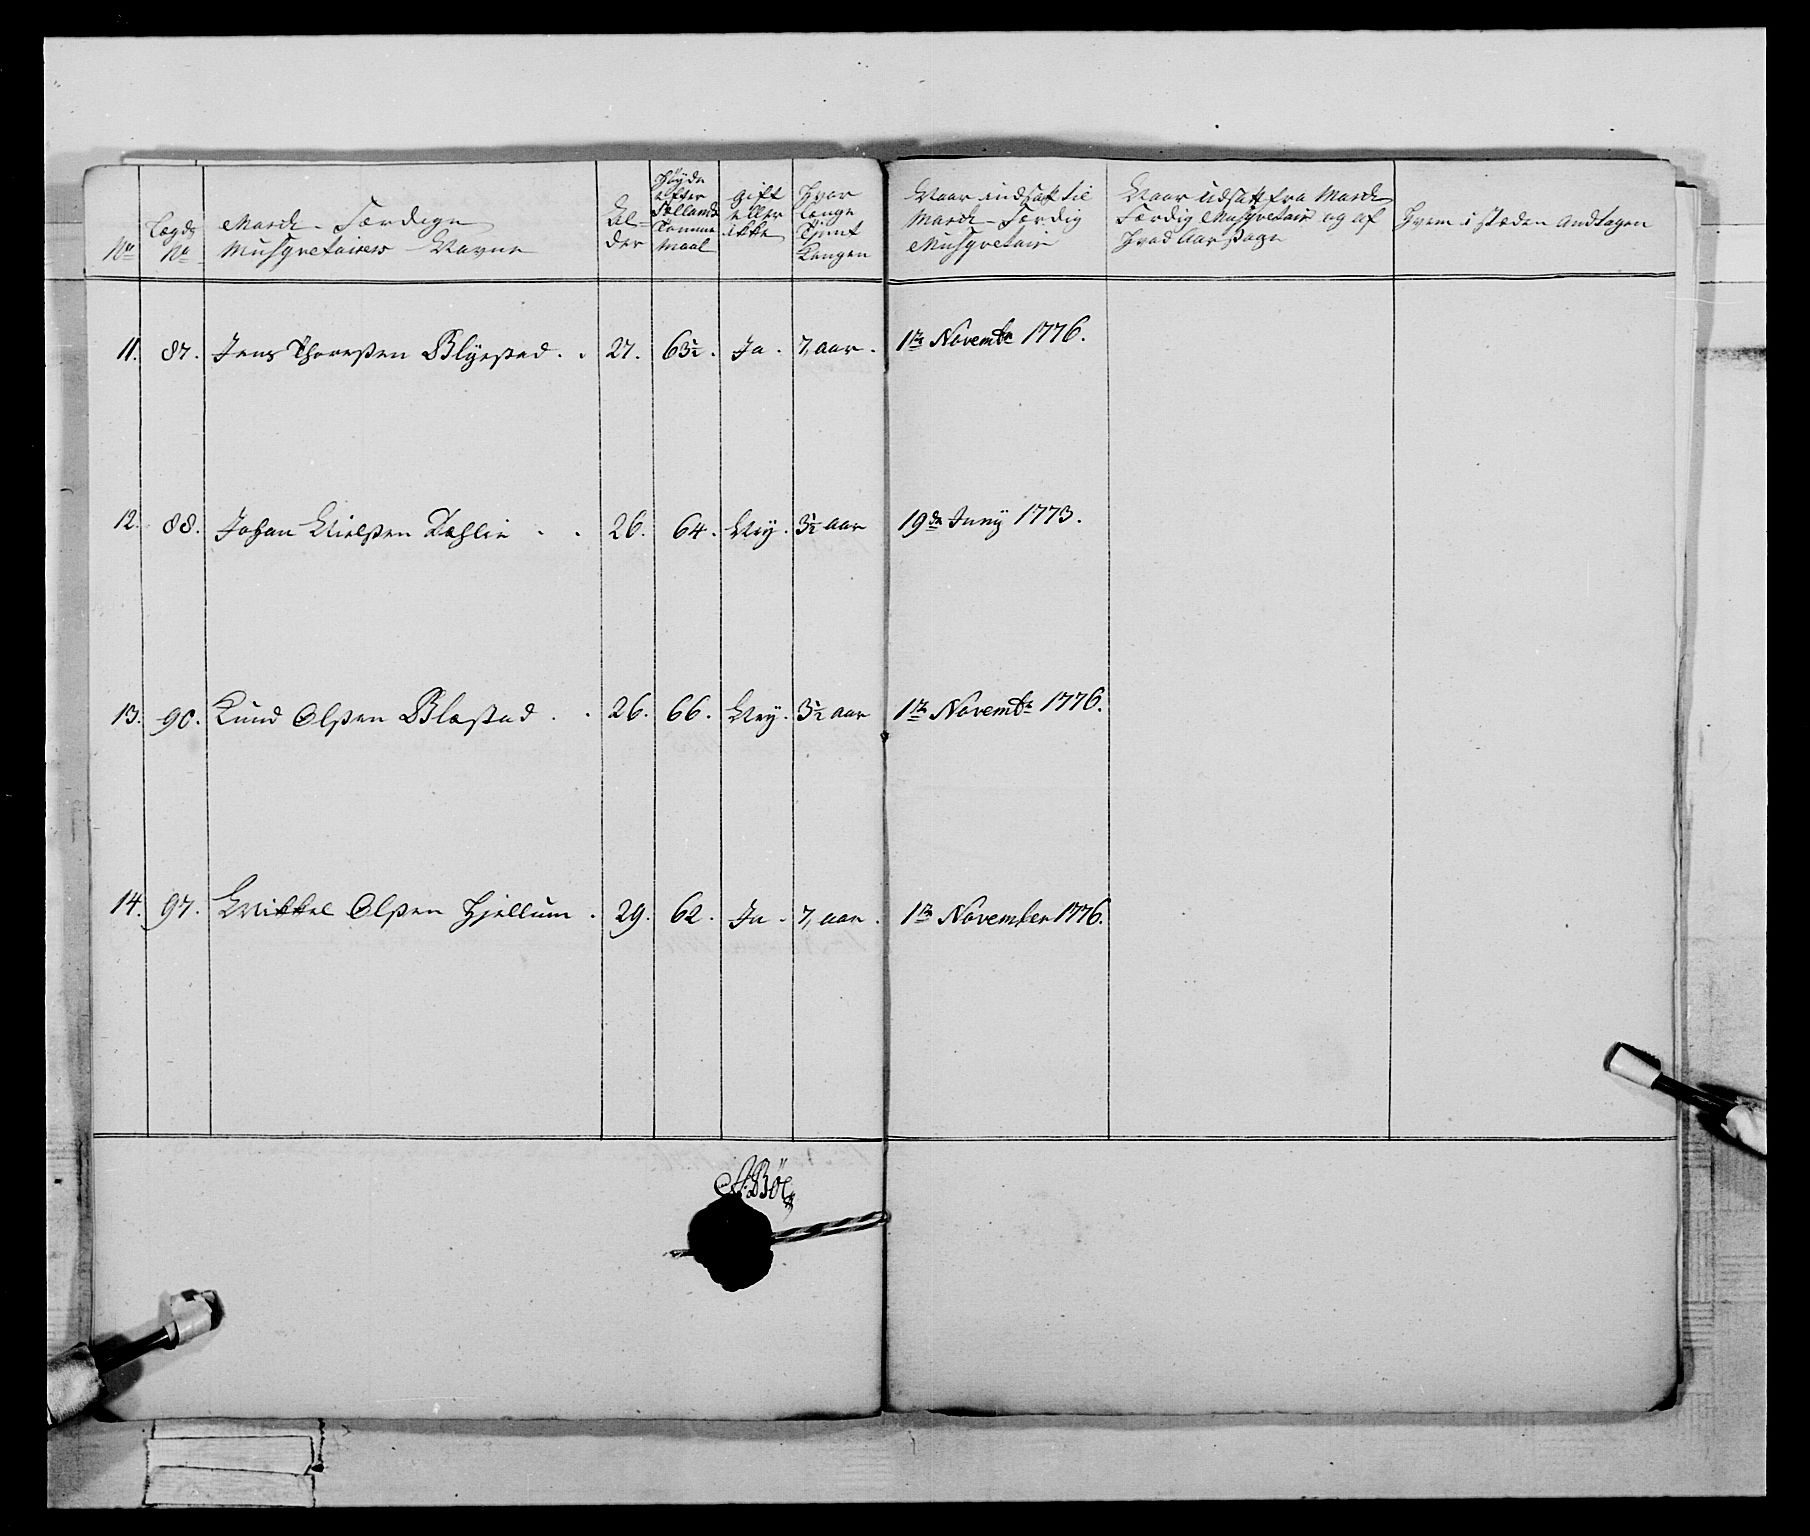 No
Lægds No
March-Færdige
Musqvetairers Navne
Al-
der
Høyde
efter
Siellands
Tomme
Maal
gift
eller
ikke
Hvor
længe
Tjent
Kongen
Naar indsatt til
March-Færdig
Musqvetair
Naar udsatt fra March
Færdig Musqvetair og af
Hvad Aarsage
Hvem i stæden Andtagen
11. 87. Jens Thoresen Blyestad . . 27. 63½. Ja. 7, aar. 1te Novembr 1776.
12. 88. Johan Nielsen Dæhlie . . 26. 64. Ney. 3½ aar 19de Juny 1773.
13. 90. Knud Olsen Blæstad . . 26. 66. Ney. 3½ aar 1te Novembr 1776.
14. 97. Mikkel Olsen Hjellum . 29. 62. Ja. 7, aar. 1te November 1776.
Bøe